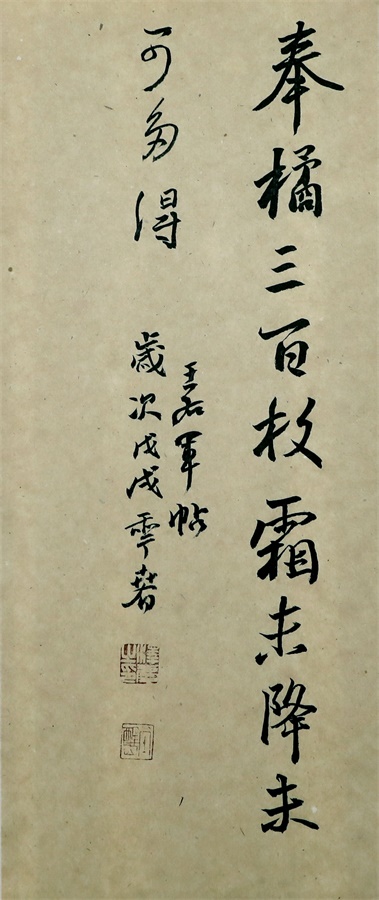 奉橘三百枚霜未降未
可多得
王右軍帖
歲次戊戌雪翥